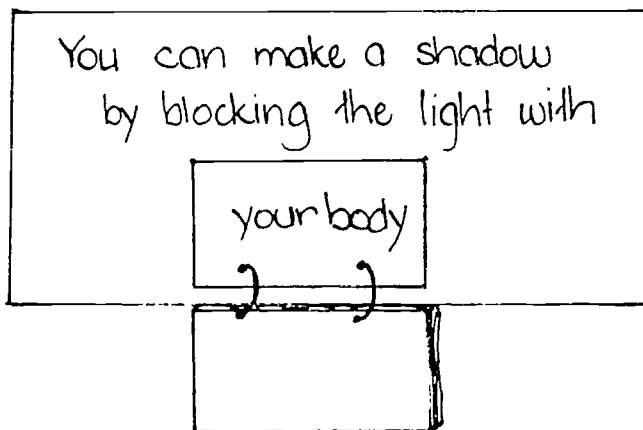 You can make a shadow
by blocking the light with
your body